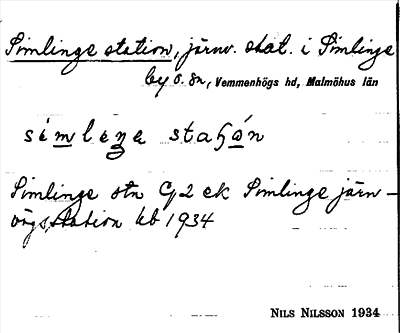 Simlinge station, järnv. stat. i Simlinge
by o. sn, Vemmenhögs hd, Malmöhus län
stn
Simlinge stn ek Simlinge järn-
vägsstation kb 1934
NILS NILSSON 1934